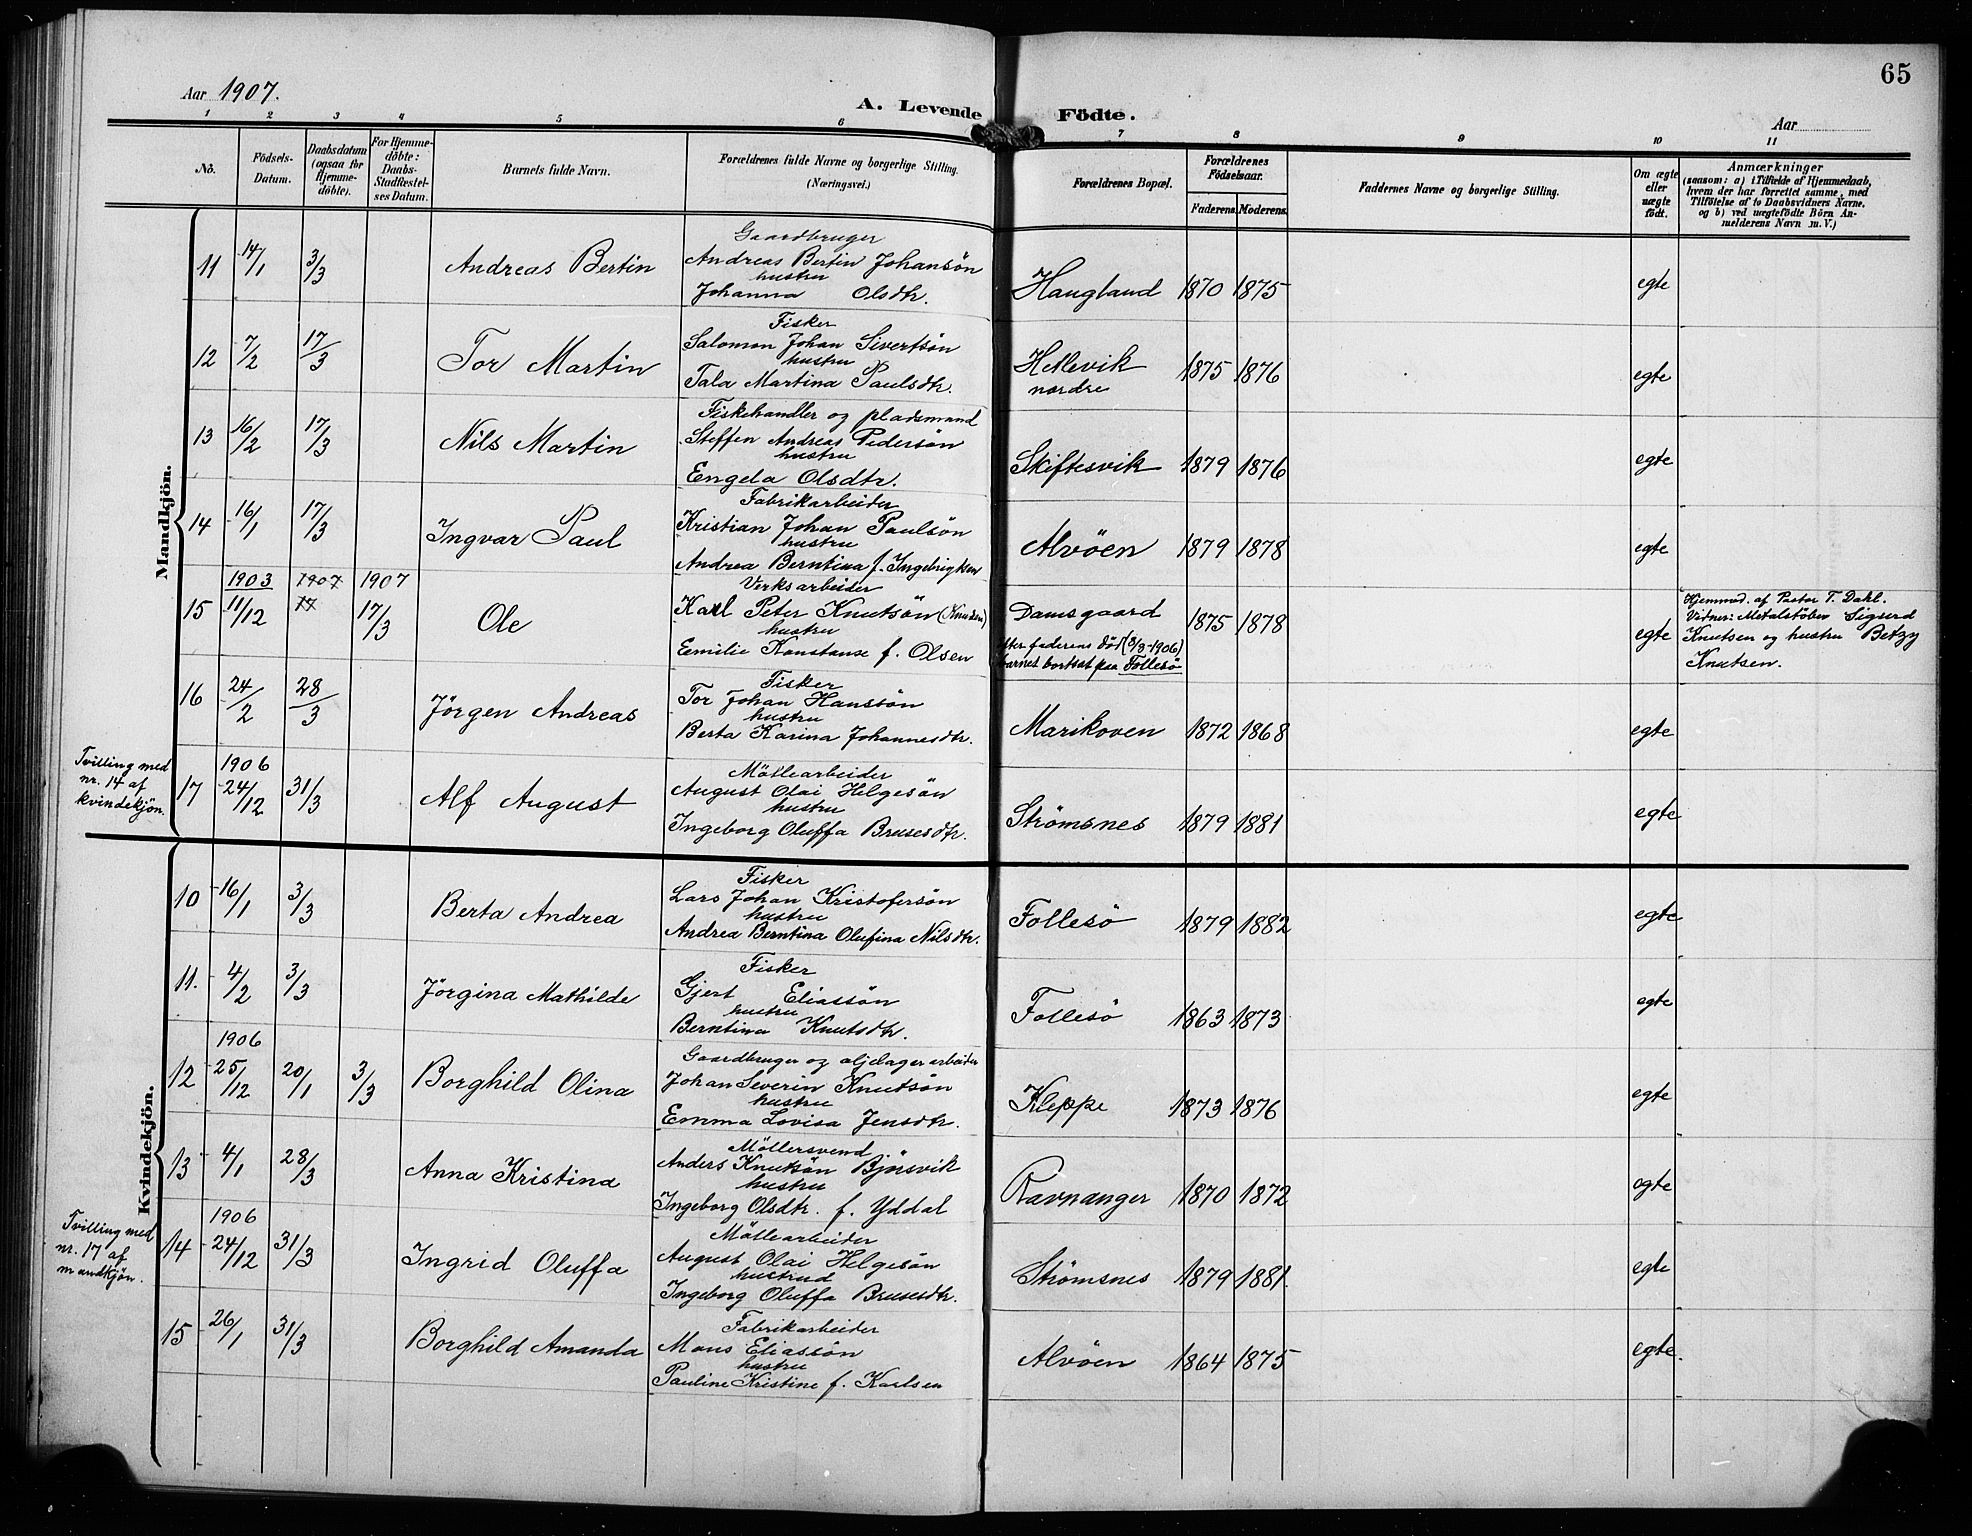 65
Aar 1907.
A. Levende Födte.
Aar
1 2 3 4 5 6 7 8 9 10 11
No.
Födsels-
Datum.
Daabsdatum
(ogsaa for
Hjemme-
döbte).
For Hjemme-
döbte:
Daabs-
Stadfæstel-
ses Datum.
Barnets fulde Navn.
Forældrenes fulde Navne og borgerlige Stilling.
(Næringsvei.)
Forældrenes Bopæl.
Forældrenes
Födselsaar.
Faderens. Moderens.
Faddernes Navne og borgerlige Stilling.
Om ægte
eller
uægte
födt.
Anmærkninger
(saasom: a) i Tilfælde af Hjemmedaab,
hvem der har forrettet samme, med
Tilföielse af to Daabsvidners Navne,
og b) ved uægtefödte Börn An-
melderens Navn m. V.)
Mandkjön.
11 14/1 3/3 Andreas Bertin
Gaardbruger
Andreas Bertin Johansön
hustru
Johanna Olsdtr.
Haugland 1870 1875 egte
12 7/2 17/3 Tor Martin
Fisker
Salomon Johan Sivertsön
hustru
Tala Martina Paulsdtr.
Hetlevik
nordre
1875 1876 egte
13 16/2 17/3 Nils Martin
Fiskehandler og pladsmand
Steffen Andreas Pedersön
hustru
Engela Olsdtr.
Skiftesvik 1879 1876 egte
14 16/1 17/3 Ingvar Paul
Fabrikarbeider
Kristian Johan Paulsön
hustru
Andrea Berntina f. Ingebrigtsen
Alvöen 1879 1878 egte
1903 1907 1907
15 11/12 17 17/3 Ole
Verksarbeider
Karl Peter Knutsön (Knudsen)
hustru
Emilie Konstanse f. Olsen
Damsgaard
efter faderens död (8/3-1906)
barnet bortsat paa Follesö
1875 1878 egte
Hjemmed. af Pastor T. Dahl.
Vidner: Metalstöber Sigurd
Knutsen og hustru Betzy
Knutsen.
16 24/2 28/3 Jörgen Andreas
Fisker
Tor Johan Hanssön
hustru
Berta Karina Johannesdtr.
Marikoven 1872 1868 egte
Tvilling med
nr. 14 af
kvindekjön.
1906
17 24/12 31/3 Alf August
Möllearbeider
August Olai Helgesön
hustru
Ingeborg Oluffa Brusesdtr.
Strömsnes 1879 1881 egte
Kvindekjön.
10 16/1 3/3 Berta Andrea
Fisker
Lars Johan Kristofersön
hustru
Andrea Berntina Olufina Nilsdtr.
Follesö 1879 1882 egte
11. 4/2 3/3 Jörgina Mathilde
Fisker
Gjert Eliassön
hustru
Berntina Knutsdtr.
Follesö 1863 1873 egte
1906
12 25/12 20/1 3/3 Borghild Olina
Gaardbruger og oljelager arbeider
Johan Severin Knutsön
hustru
Emma Lovisa Jensdtr.
Kleppe 1873 1876 egte
13 4/1 28/3 Anna Kristina
Möllersvend
Anders Knutsön Bjørsvik
hustru
Ingeborg Olsdtr. f. Yddal
Ravnanger 1870 1872 egte
Tvilling med
nr. 17 af
mandkjön.
1906
14 24/12 31/3 Ingrid Oluffa
Möllearbeider
August Olai Helgesön
hustrud
Ingeborg Oluffa Brusesdtr.
Strömsnes 1879 1881. egte
15 26/1 31/3 Borghild Amanda
Fabrikarbeider
Mons Eliassön
hustru
Pauline Kristine f. Karlsen
Alvöen 1864 1875 egte.